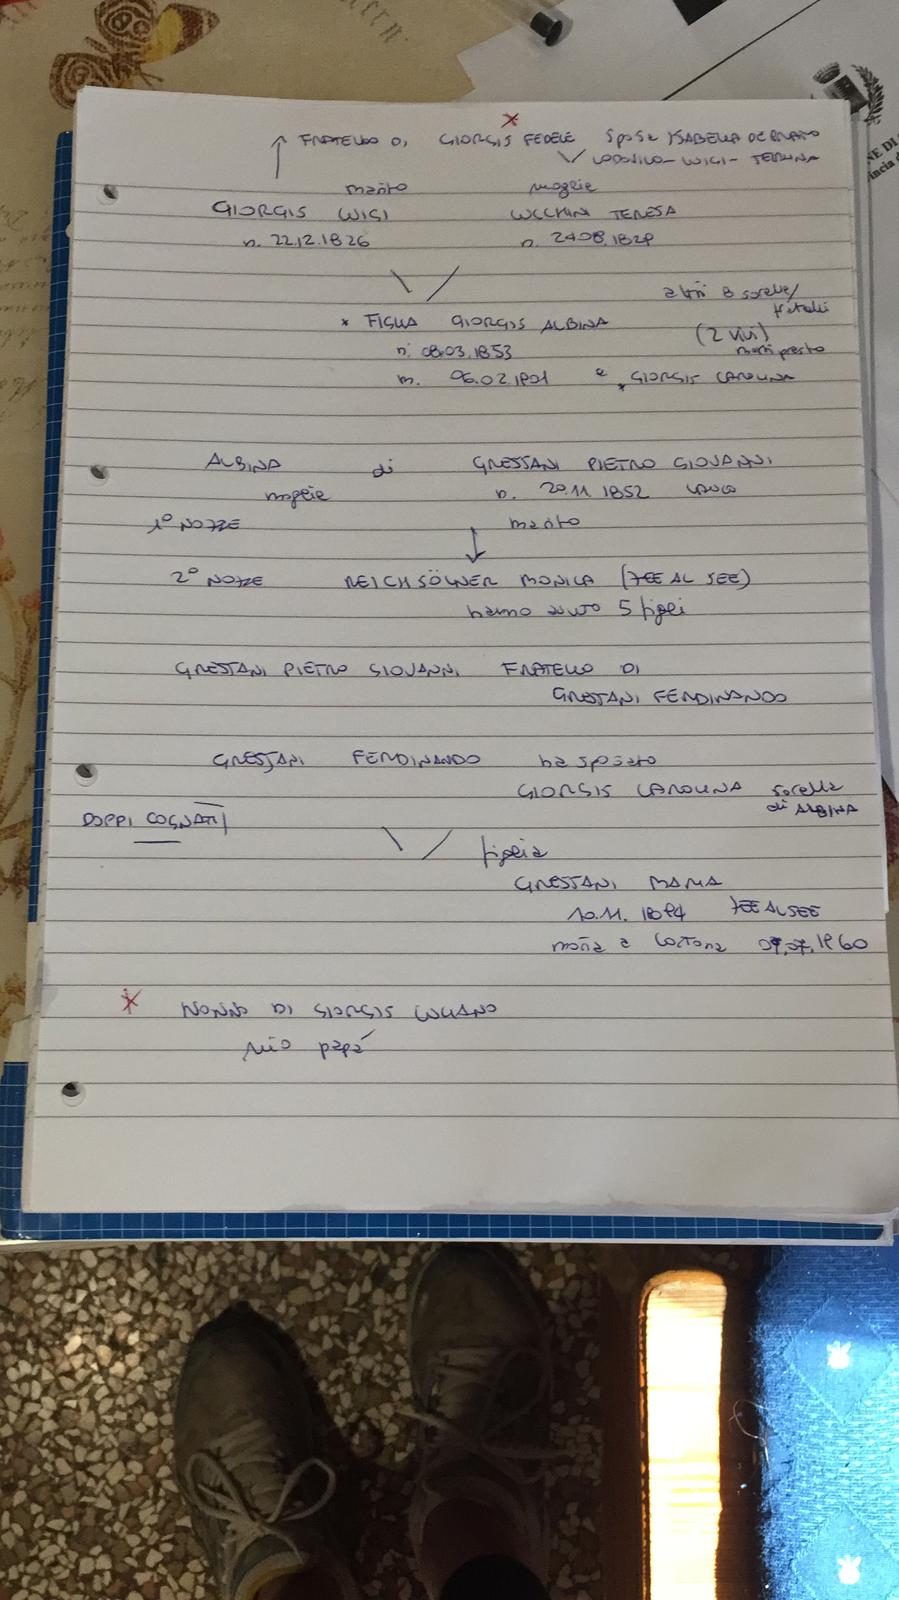 FRATELLO DI GIORGIS FEDELE sposa ISABELLA DE
LODOVICO - LUIGI -
marito moglie
GIORGIS LUIGI LUCCHINI TERESA
n. 22.12.1826 n. 24.08.1829
altri 8 sorelle/
fratelli
* FIGLIA GIORGIS ALBINA (2 vivi)
n. 08.03.1853 morti presto
m. 06.02.1901 e * GIORGIS CAROLINA
ALBINA di GRESSANI PIETRO GIOVANNI
moglie n. 20.11.1852 LAUCO
1° NOZZE marito
2° NOZZE REICHSÖLNER MONICA (ZEE AL SEE)
hanno avuto 5 figli
GRESSANI PIETRO GIOVANNI FRATELLO DI
GRESSANI FERDINANDO
GRESSANI FERDINANDO ha sposato
GIORGIS CAROLINA sorella
di ALBINA
DOPPI COGNATI
figlia
GRESSANI MARIA
10.11.1894 ZEE AL SEE
morta a Cortona 1960
* NONNO DI GIORGIS LUCIANO
mio papà